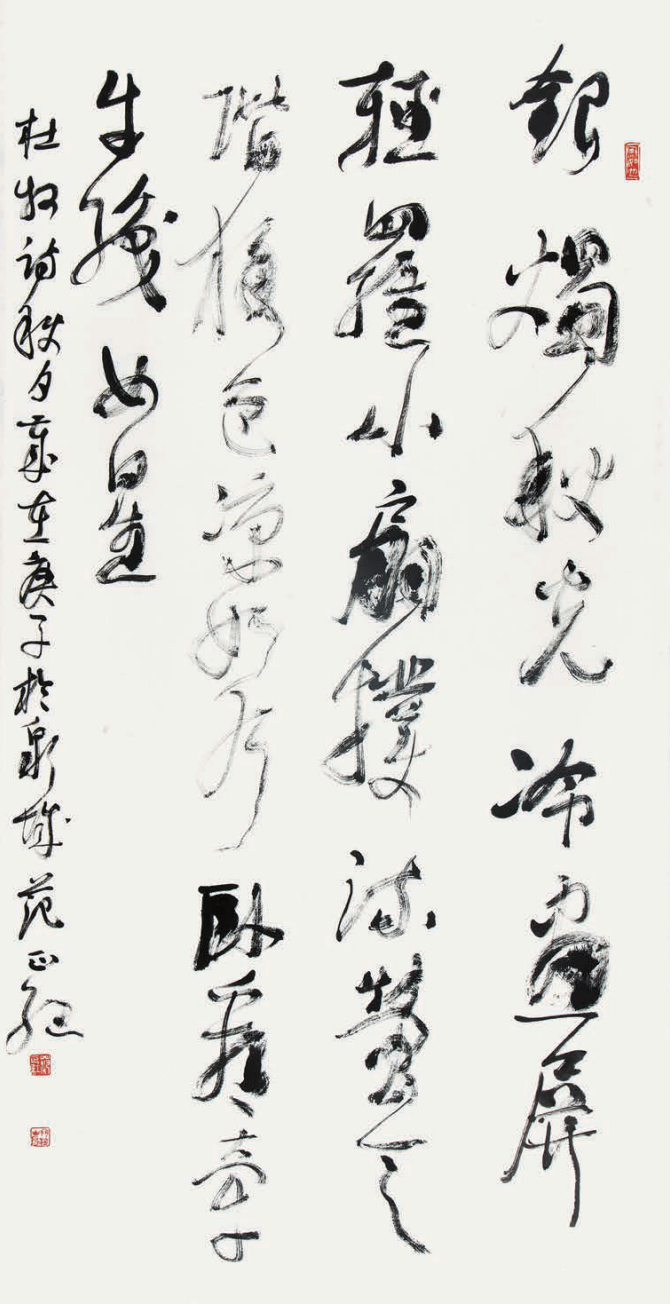 銀燭秋光冷畫屏
輕羅小扇撲流螢天
階夜色涼如水臥看牽
牛織女星
杜牧詩秋夕歲在庚子於泉城范正紅